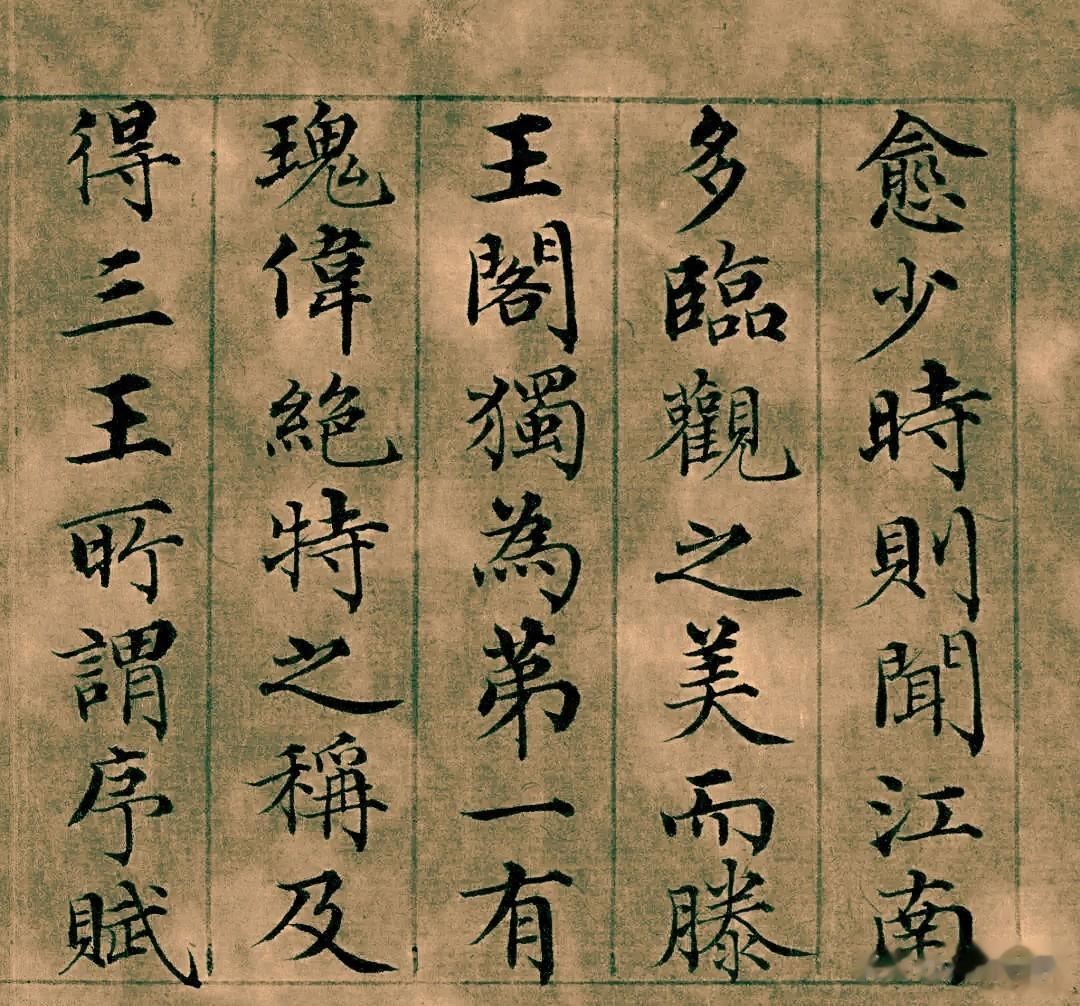 愈少時則聞江南
多臨觀之美而滕
王閣獨為第一有
瑰偉絕特之稱及
得三王所謂序賦